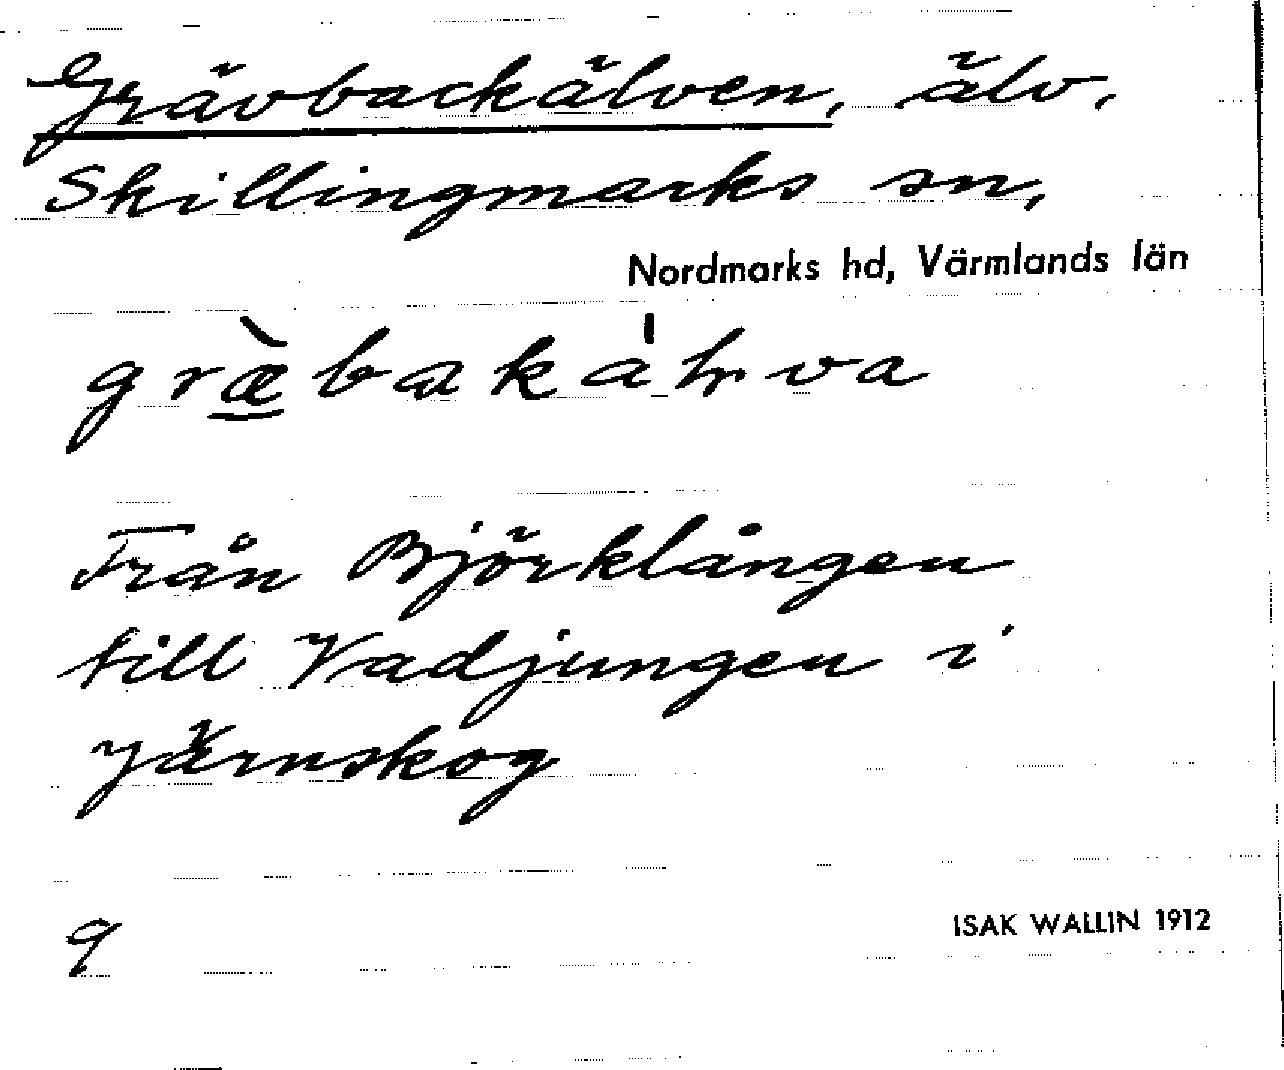 Grävbackälven, älv,
Skillingmarks sn,
Nordmarks hd, Värmlands län
Från Björklången
till Vadjungen i
Järnskog
9
ISAK WALLIN 1912